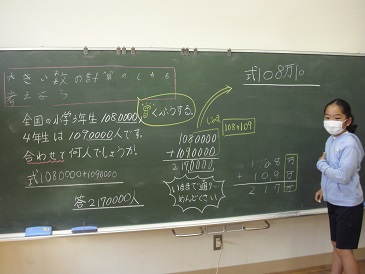 大きい数の計算のしかたを
考えよう
全国の小学3年生1080000人
4年生は1090000人です。
合わせて何人でしょうか。
式1080000+1090000
答2170000人
くふうする。
1080000
+1090000
2170000
いままで通り…
めんどくさい
108+109
式108万+10
108万
+109万
217万